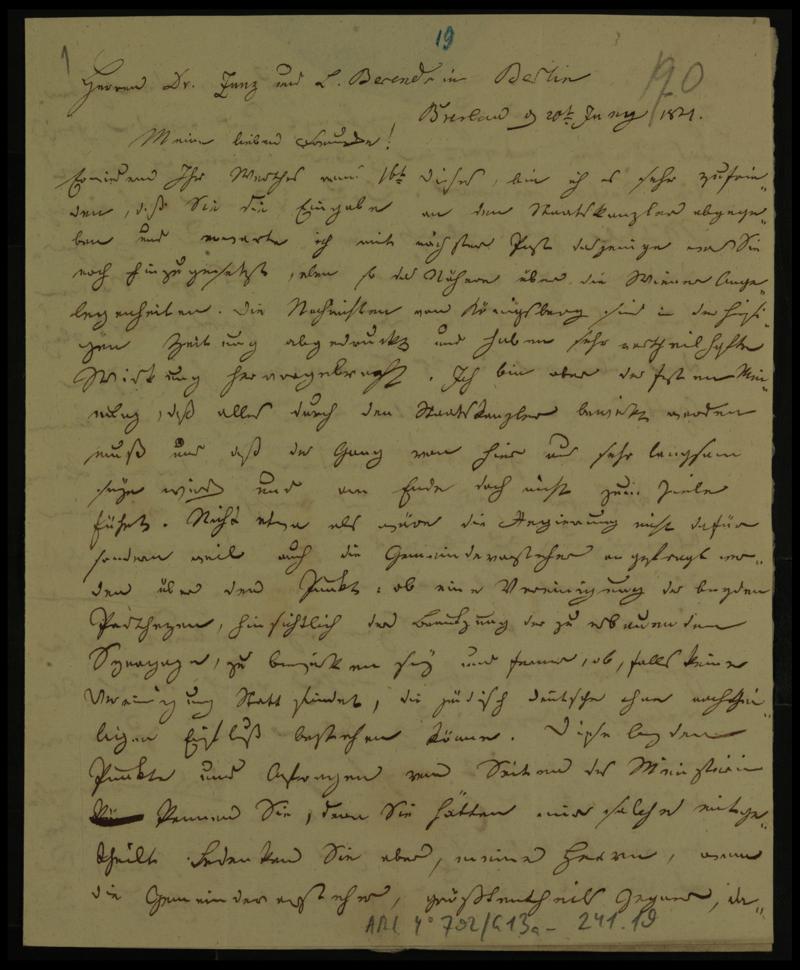 19
1
190
Herren Dr. Zunz und L. Berendt in Berlin
Breslau d 20t Juny 1821.
Meine lieben Freunde!
Erwiedernd Ihr Werthes vom 16t dieses, bin ich es sehr zufrie-
den, daß Sie die Eingabe an den Staatskanzler abgege-
ben und erwarte ich mit nächster Post dasjenige was Sie
noch hinzugesetzt, eben so das Nähere über die Wiener Ange-
legenheiten. Die Nachrichten von Königsberg sind in der hiesi-
gen Zeitung abgedruckt und haben sehr vortheilhafte
Wirkung hervorgebracht. Ich bin aber der festen Mei-
nung, daß alles durch den Staatskanzler bewirkt werden
muß und daß der Gang von hier aus sehr langsam
seyn wird und am Ende doch nicht zum Ziele
führt. Nicht etwa als wäre die Regierung nicht dafür
sondern weil auch die Gemeindevorsteher angefragt wer-
den über den Punkt: ob eine Vereinigung der beyden
Partheyen, hinsichtlich der Benutzung der zu erbauenden
Synagoge, zu bewirken sey und ferner, ob, falls keine
Vereinigung Statt findet, die jüdisch deutsche ohne nachthei-
ligen Einfluß bestehen könne. Diese beyden
Punkte und Anfragen von Seiten des Ministerii
kennen Sie, denn Sie hätten mir solche mitge-
theilt. Bedenken Sie aber, meine Herrn, wenn
die Gemeindevorsteher, größtentheils Gegner, da-
ARC 4° 792/G13a- 241.19